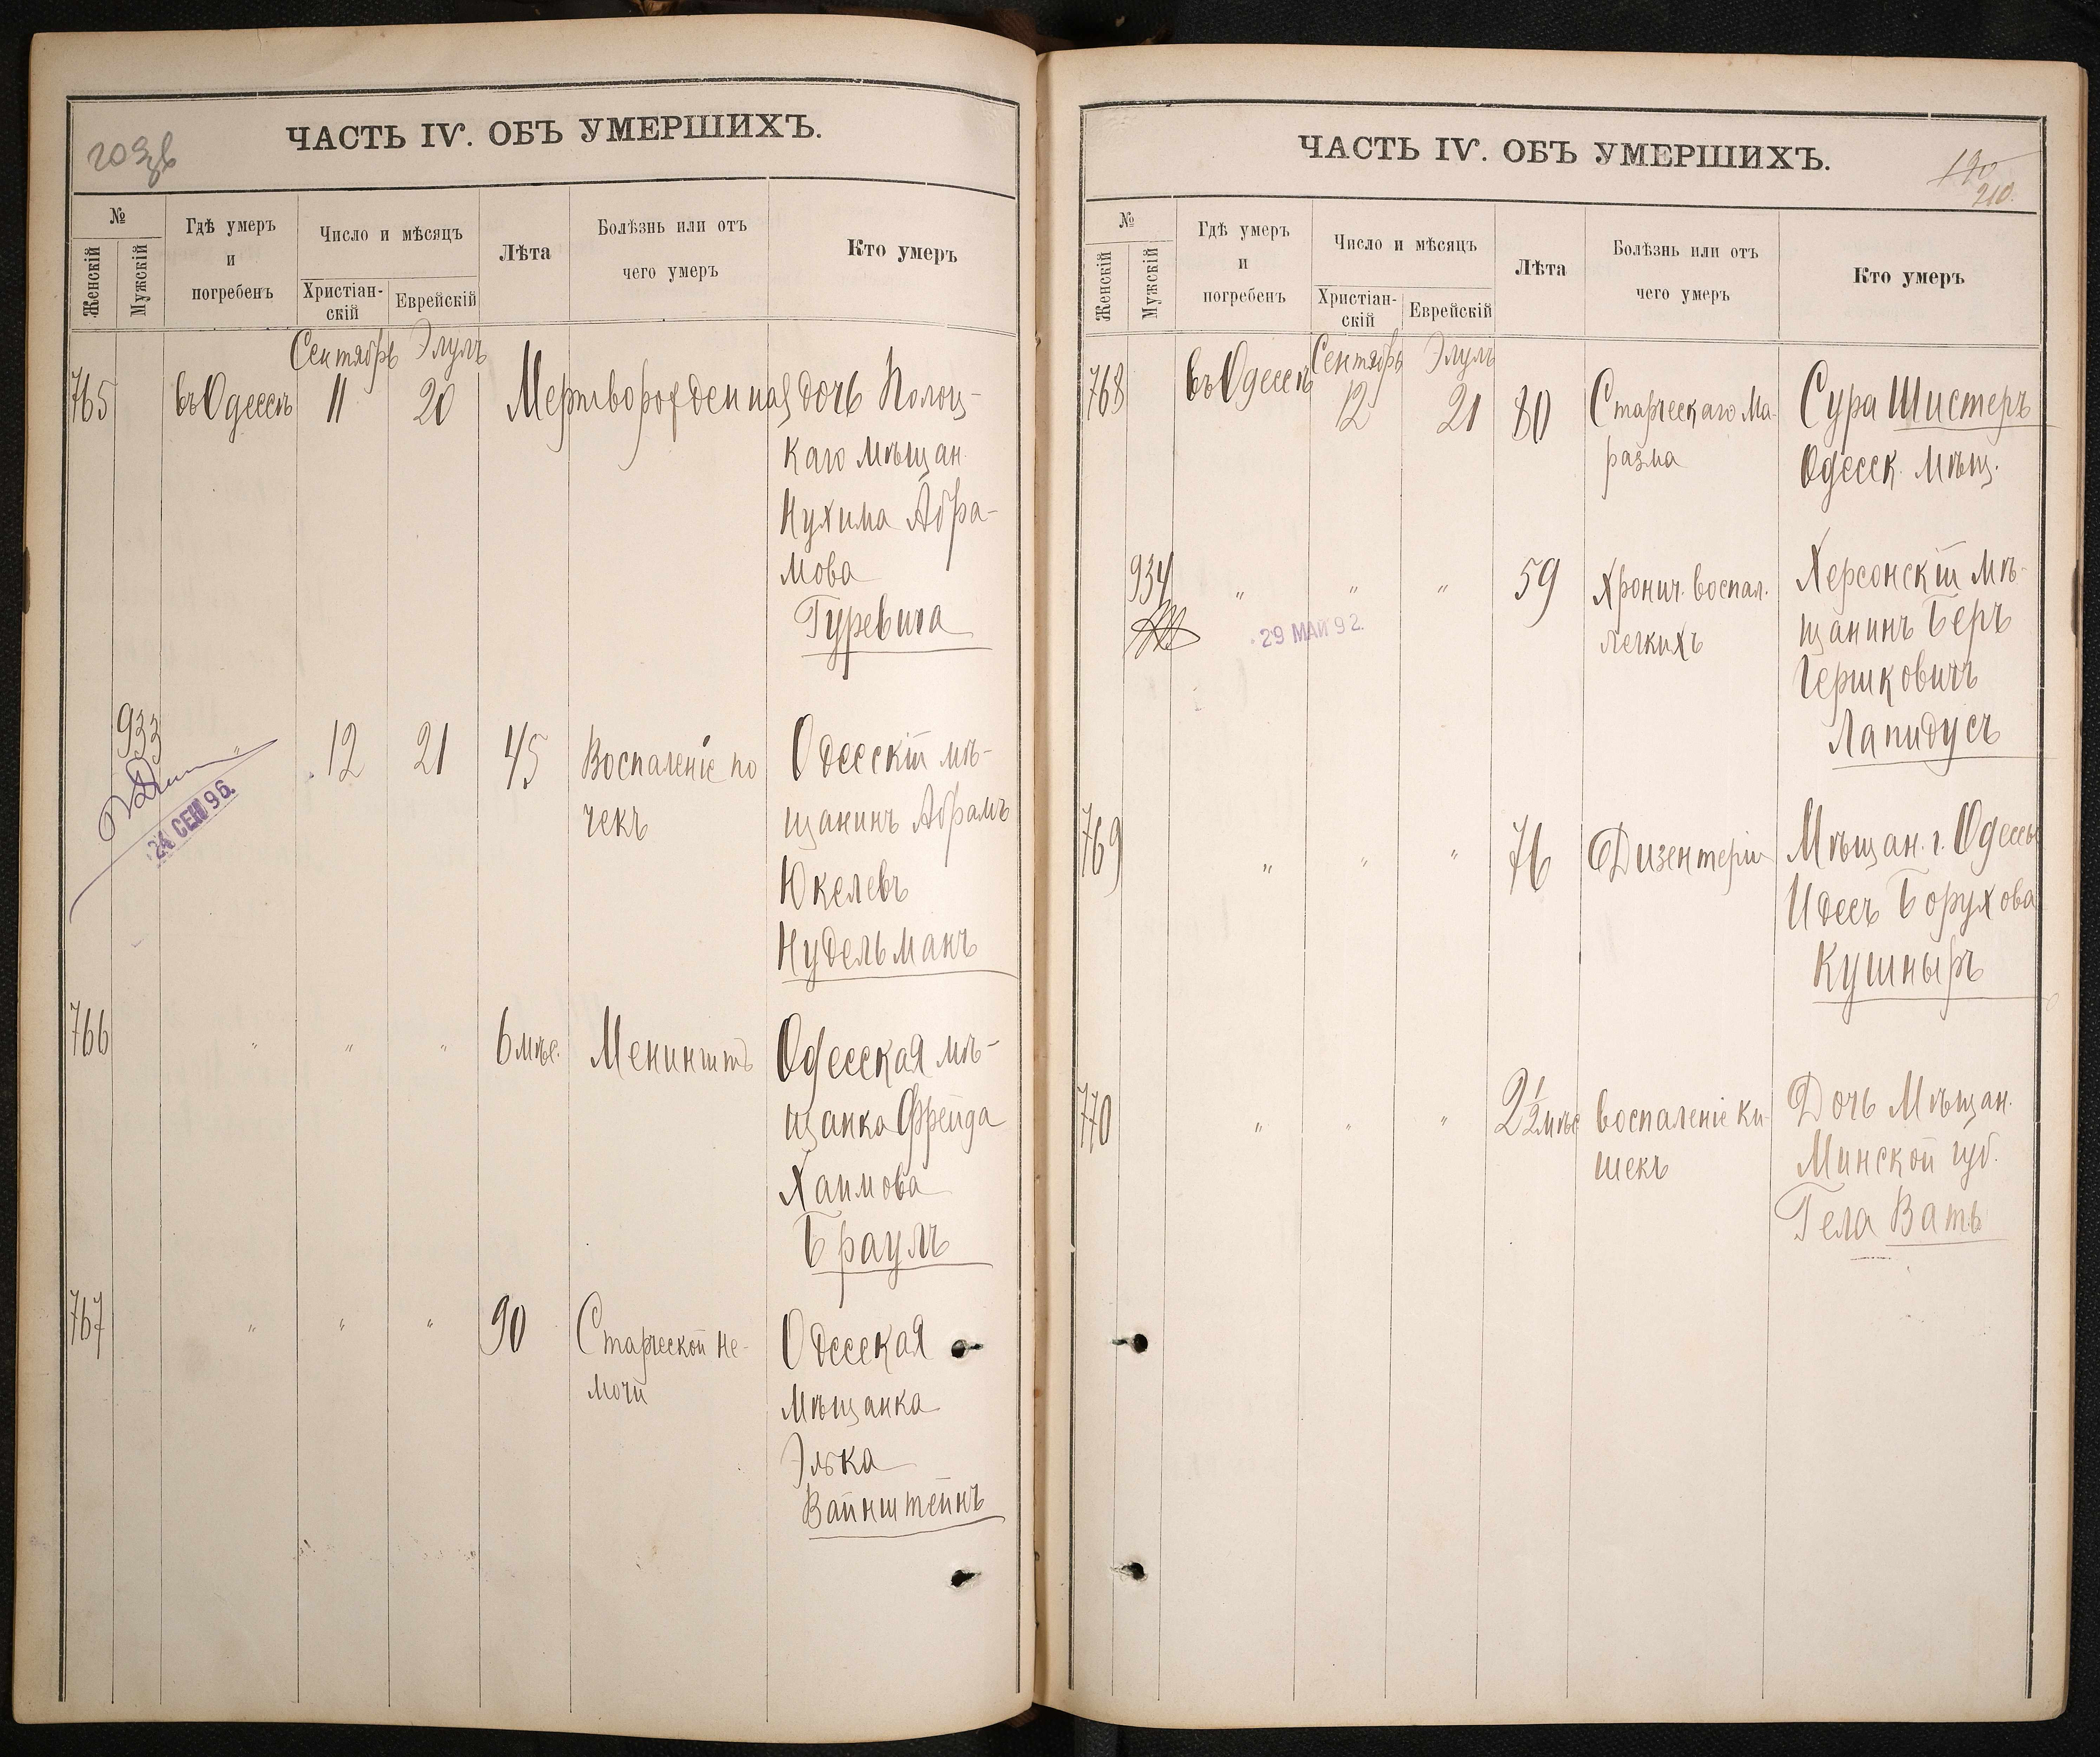 ЧАСТЬ IV. ОБЪ УМЕРШИХЪ.
№
Женскій
Мужскій
Гдѣ умеръ
и
погребенъ
Число и мѣсяцъ
Христіан-
скій
Еврейскій
Лѣта
Болѣзнь или отъ
чего умеръ
Кто умеръ
Сентябрь Элулъ
765 въ Одессѣ 11 20 Мертворожденная дочь Полоц-
каго мѣщан.
Нухима Абра-
мова
Гуревича
933 " 12 21 45 Воспаленіе по
чекъ
Одесскій мѣ-
щанинъ Абрамъ
Юкелевъ
Нудельманъ
24 СЕН 96.
766 " " " 6 мѣс. Менингитъ
Одесская мѣ-
щанка Фрейда
Хаимова
Браулъ
767 " " " 90 Старческой не-
мочи
Одесская
Мѣщанка
Элька
Вайнштейнъ
ЧАСТЬ IV. ОБЪ УМЕРШИХЪ.
190
210.
№
Женскій
Мужскій
Гдѣ умеръ
и
погребенъ
Число и мѣсяцъ
Христіан-
скій
Еврейскій
Лѣта
Болѣзнь или отъ
чего умеръ
Кто умеръ
Сентябрь Элулъ
768 въ Одессѣ 12 21 80 Старческаго Ма-
разма
Сура Шистеръ
Одесск. мѣщ.
934 " " " 59 Хронич. воспал.
легкихъ
Херсонскій мѣ-
щанинъ Беръ
Гершковичъ
Лапидусъ
29 МАЙ 92.
769 " " " 76 Дизентеріи
Мѣщан. г. Одессы
Идесъ Борухова
Кушныръ
770 " " " 2 1/2 мѣс воспаленіе ки-
шекъ
Дочь Мѣщан.
Минской губ.
Гела Ватъ